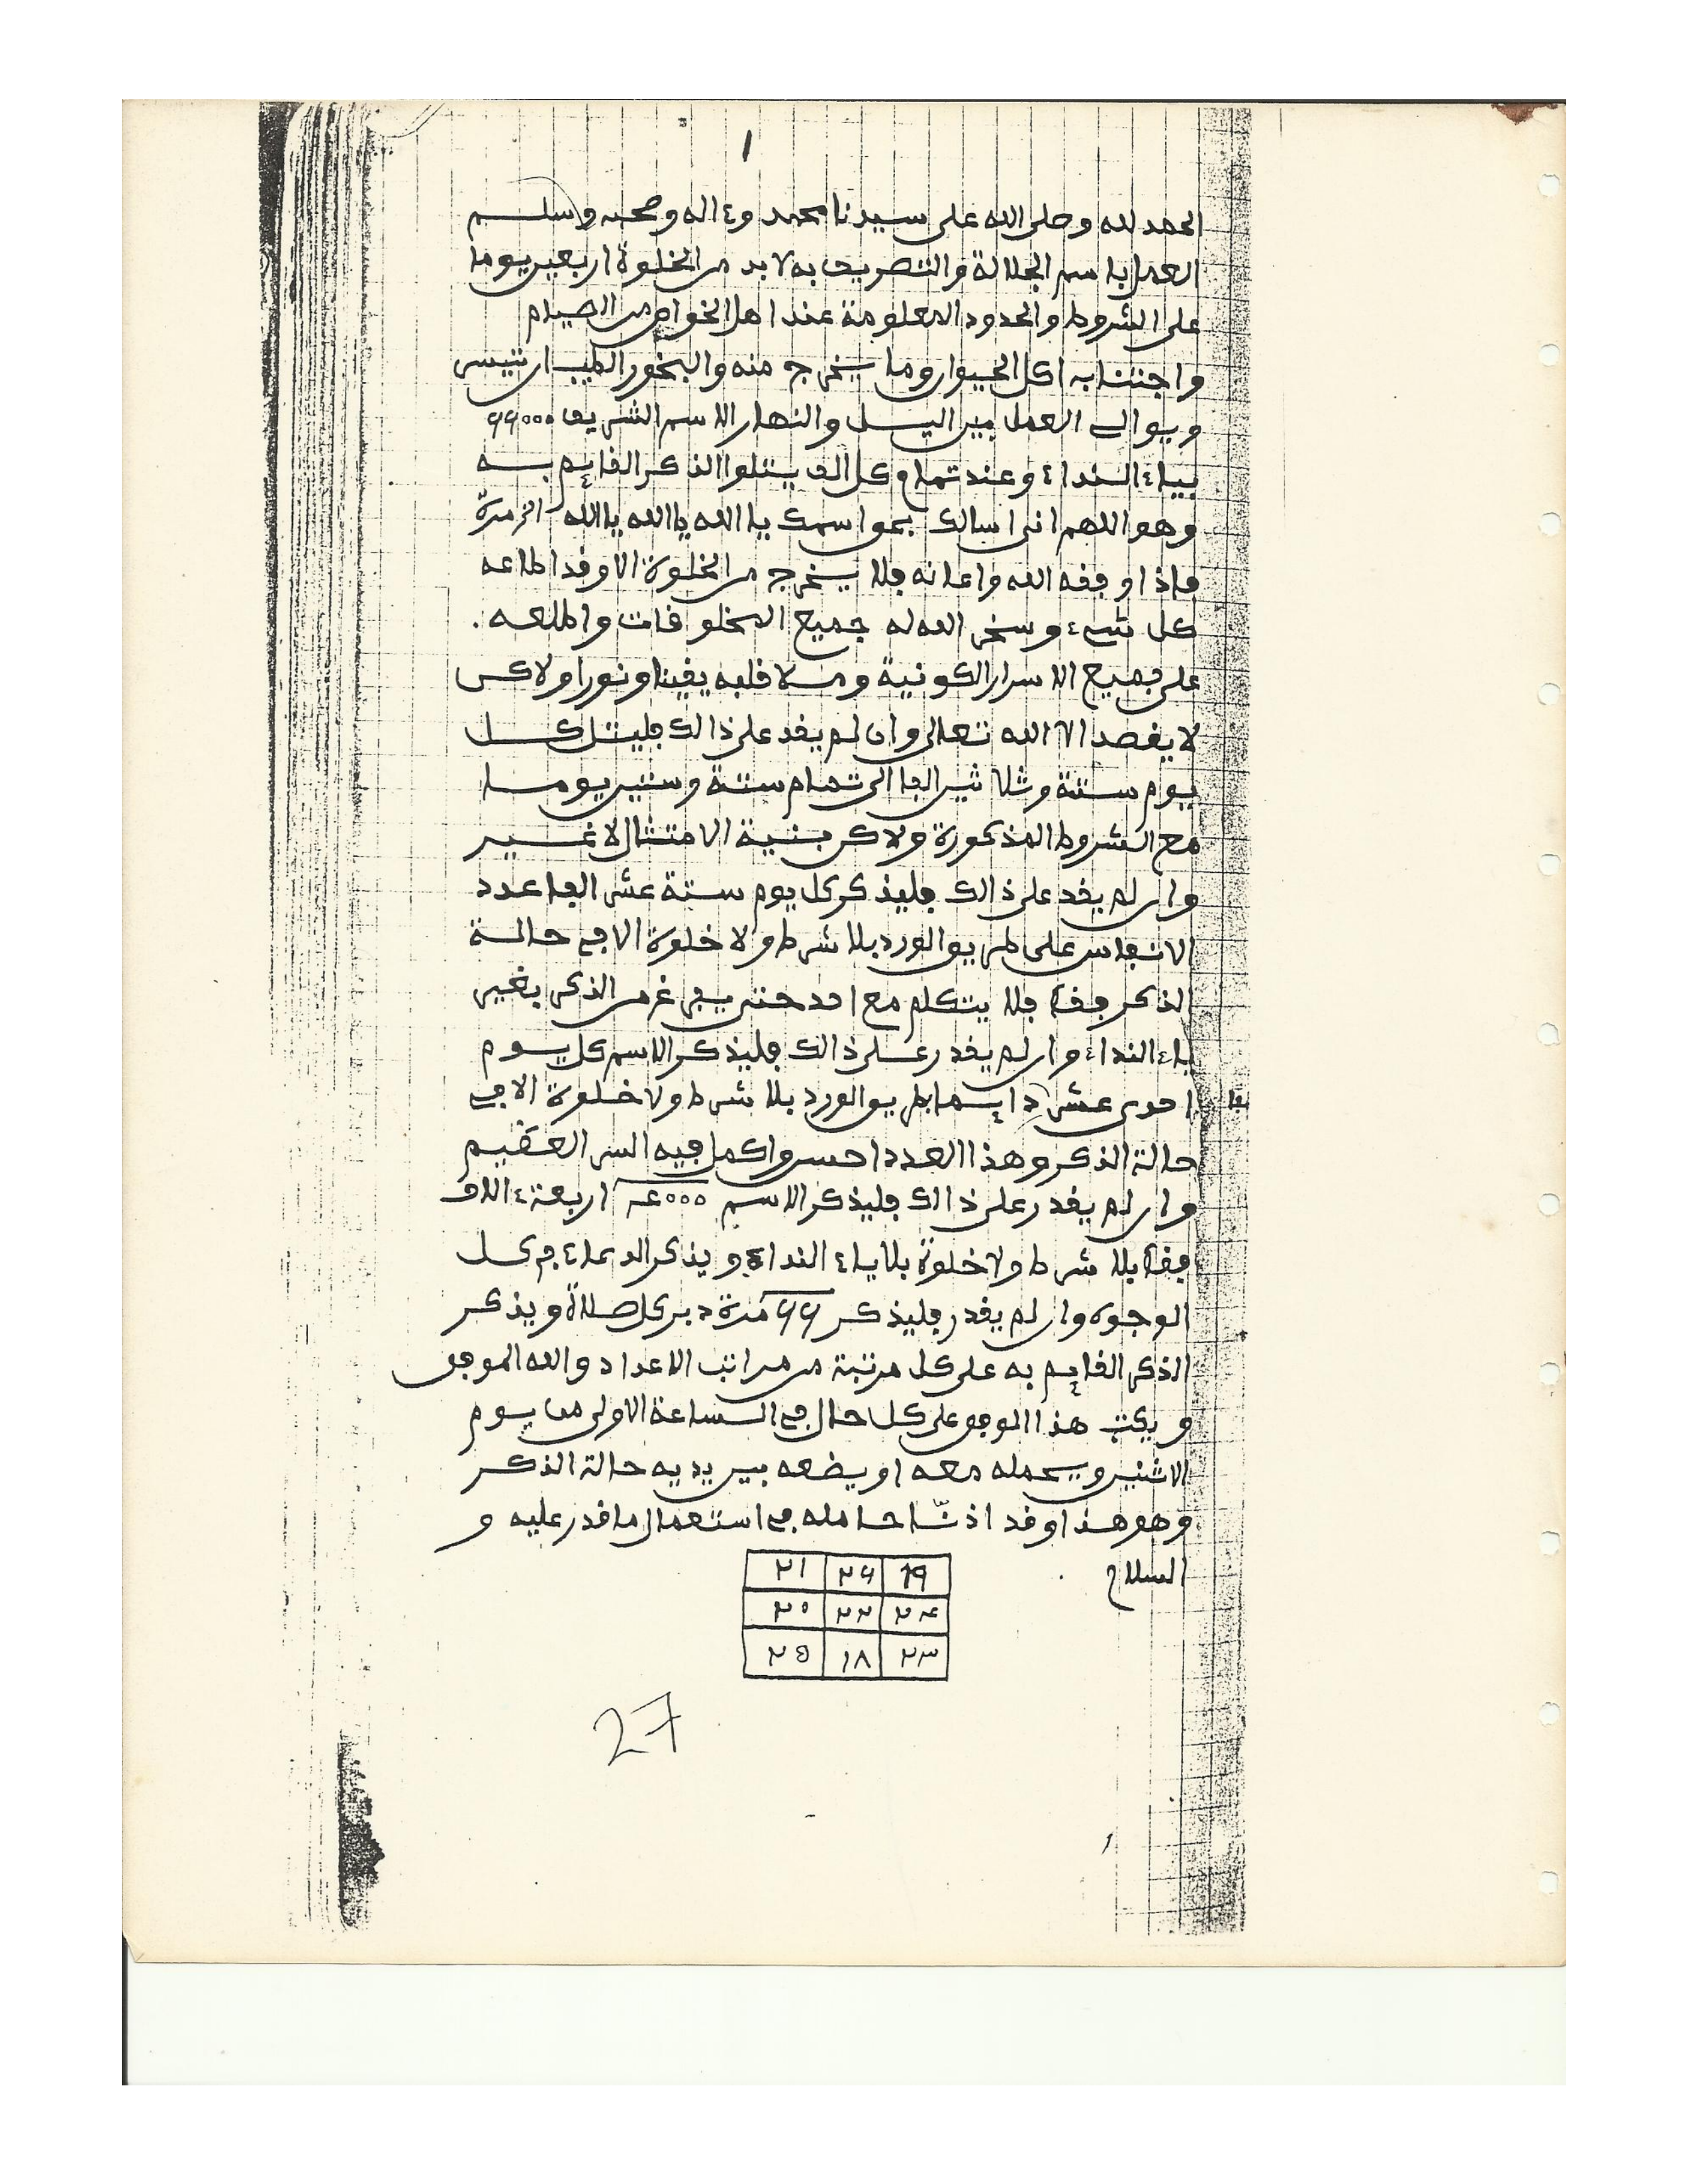 ١
الحمد لله وصلى الله على سيدنا محمد وءاله وصحبه وسلم
العمل باسم الجلالة والتصريف به لا بد من الخلوة اربعين يوما
على الشروط والحدود المعلومة عند اهل الخواص من الصيام
واجتناب اكل الحيوان وما يخرج منه والبخور الطيب ان تيسر
ويوالي العمل بين اليل والنهار الاسم الشريف ٦٦٠٠٠
بياء النداء وعند تمام كل الف يتلوا الذكر القايم به
وهو اللهم اني اسالك بحق اسمك يا الله يا الله يا الله مرة
فاذا وفقه الله واعانه فلا يخرج من الخلوة الا وقد اطاعه
كل شيء وسخر الله له جميع المخلوقات واطلعه.
على جميع الاسرار الكونية وملا قلبه يقينا ونورا ولاكن
لا يقصد الا الله تعالى وان لم يقد على ذالك فليتل كل
يوم ستة وثلاثين الفا الى تمام ستة وستين يوما
مع الشروط المذكورة ولاكن بنية الامتثال لا غير
وان لم يقد على ذالك فليذكر كل يوم ستة عشر الفا عدد
الانفاس على طريق الورد بلا شرط ولا خلوة الا في حالة
الذكر فقط فلا يتكلم مع احد حتى يفرغ من الذكر بغير
ياء النداء وان لم يقدر على ذالك فليذكر الاسم كل يوم
احدى عشر دايما بطريق الورد بلا شرط ولا خلوة الا في
حالة الذكر وهذا العدد احسن واكمل فيه السر العظيم
وان لم يقدر على ذالك فليذكر الاسم ٤٠٠٠ اربعة ءالاف
فقط بلا شرط ولا خلوة بلا ياء النداء ويذكر الدعاء في كل
الوجوه وان لم يقدر فليذكر ٦٦ مرة دبر كل صلاة ويذكر
الذكر القايم به على كل مرتبة من مراتب الاعداد والله الموفق
ويكتب هذا الموفق على كل حال في الساعة الاولى من يوم
الاثنين ويحمله معه او يضعه بين يديه حالة الذكر
وهو هذا وقد اذنّا حامله في استعمال ما قدر عليه و
السلام
١٩ ٢٦ ٢١
٢٤ ٢٢ ٢٠
٢٣ ١٨ ٢٥
27